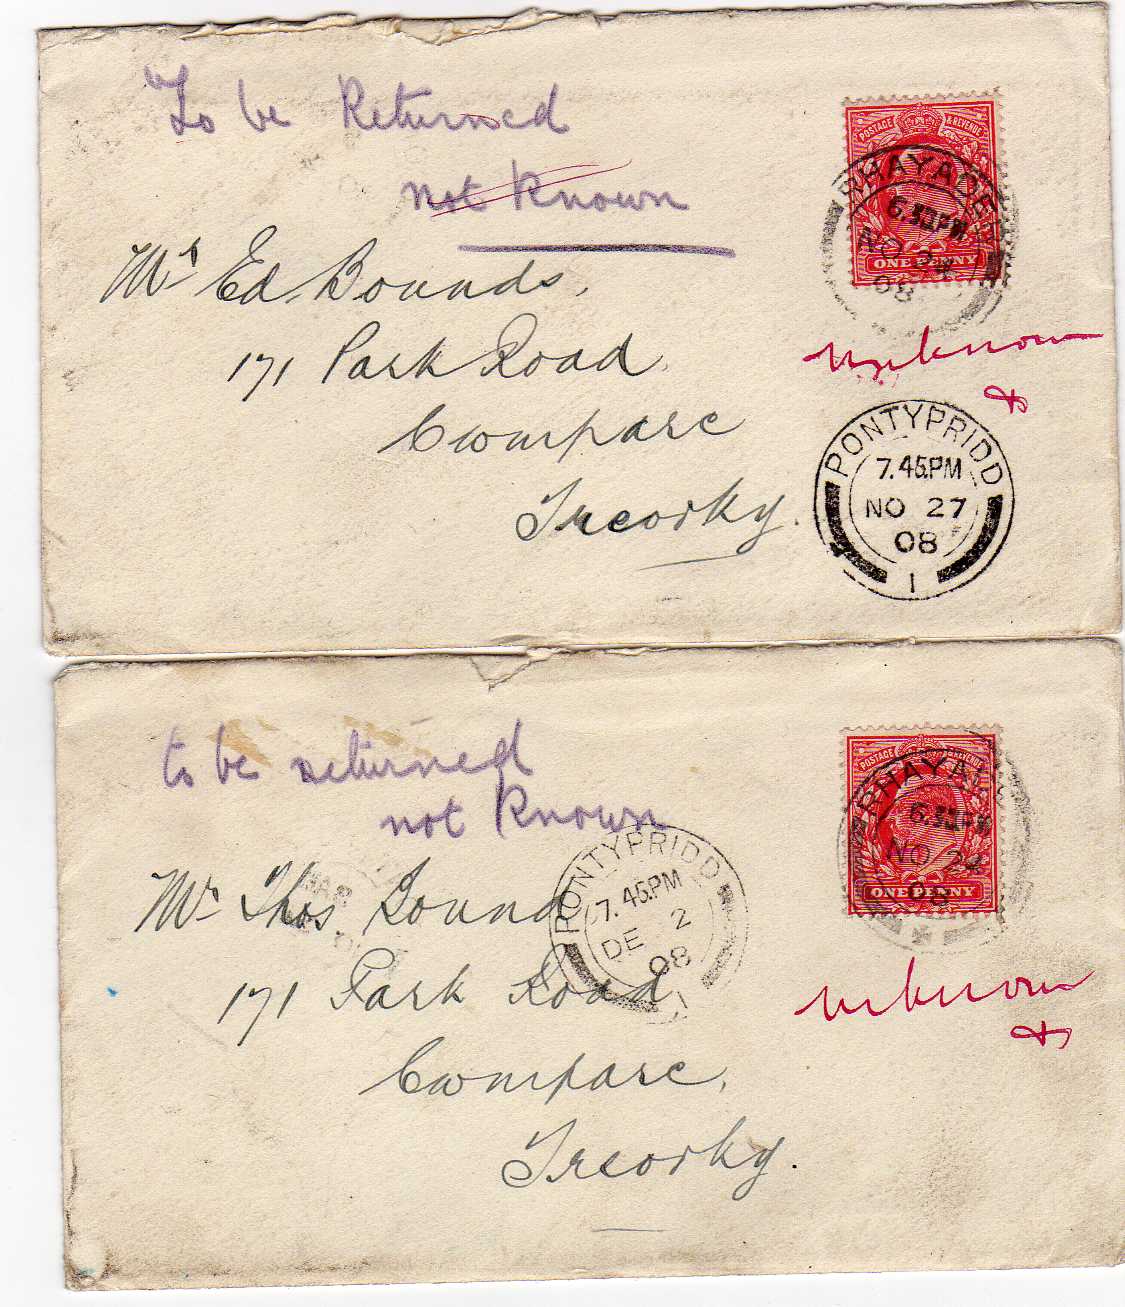 To be Returned
not Known
POSTAGE & REVENUE
RHAYADER
6.30PM
NO 24
08
ONE PENNY
Mr Ed Bounds,
171 Park Road,
Cwmparc
Treorky.
unknown
PONTYPRIDD
7.45PM
NO 27
08
1
to be returned
not Known
POSTAGE & REVENUE
RHAYADER
6.30PM
NO 24
08
ONE PENNY
Mr Thos Bounds
171 Park Road
Cwmparc,
Treorky.
PONTYPRIDD
7.45PM
DE 2
08
1
unknown